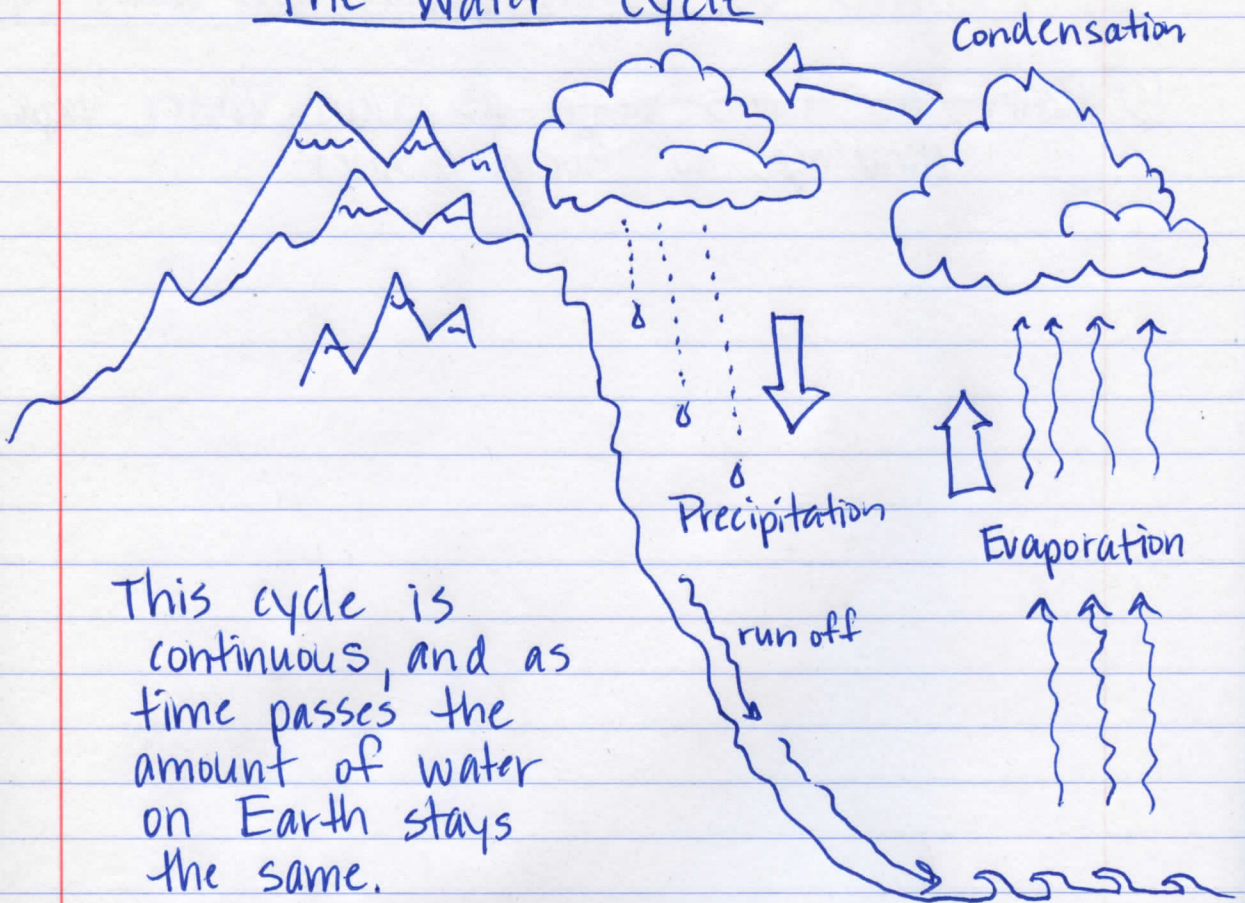 The Water Cycle
Condensation
Precipitation
Evaporation
run off
This cycle is
continuous, and as
time passes the
amount of water
on Earth stays
the same.